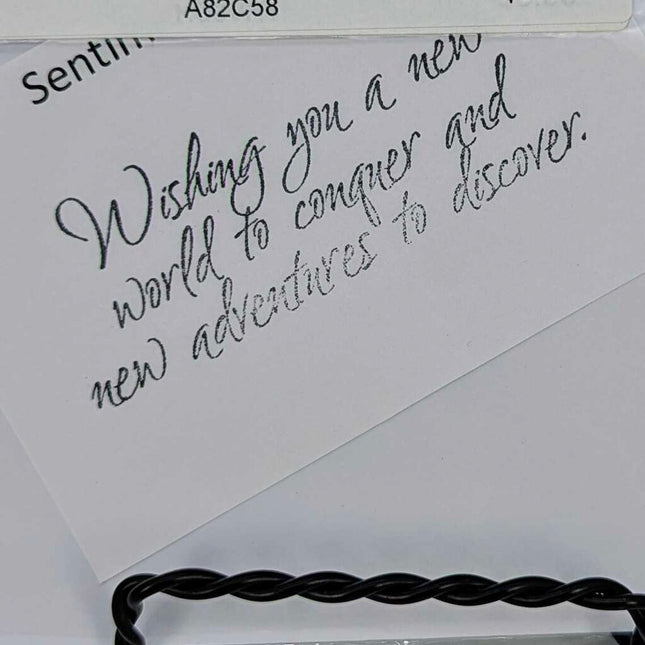 A82C58
Wishing you a new
world to conquer and
new adventures to discover.